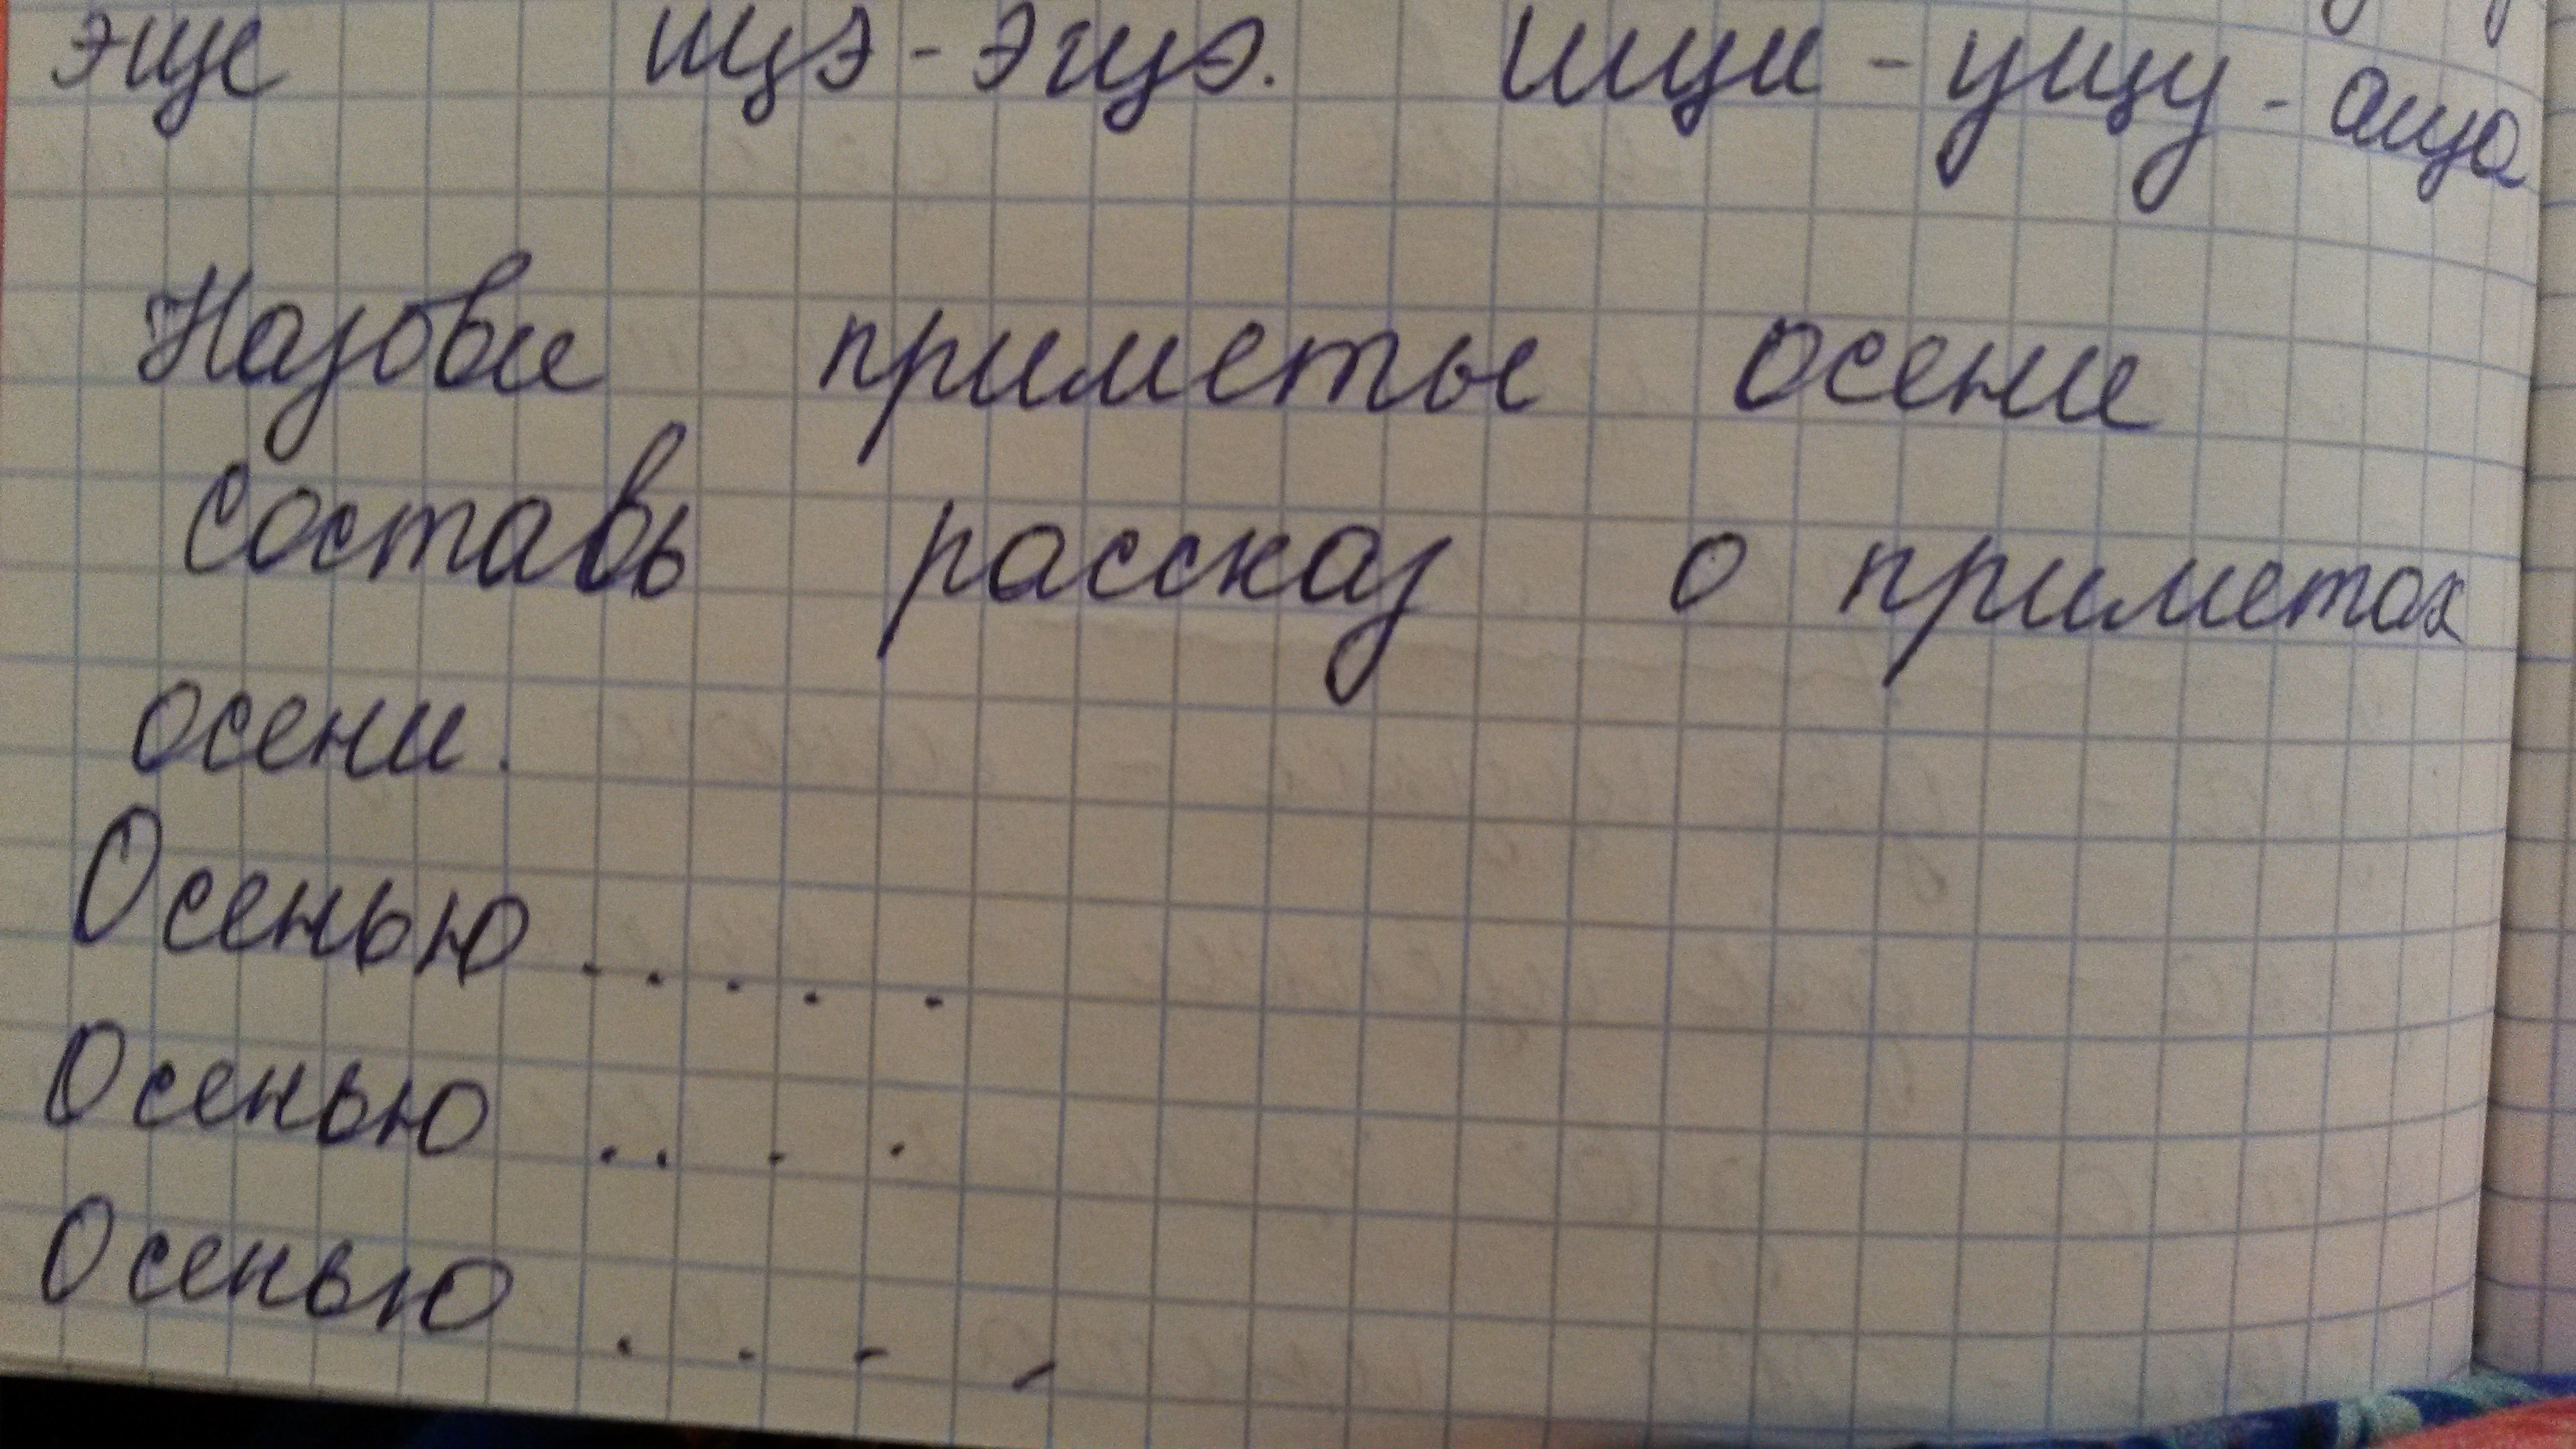 эще ицэ-эцэ. ищи - ущу - аща
Назови приметы осени
Составь рассказ о приметах
осени.
Осенью . . . . .
Осенью . . . .
Осенью . . . .